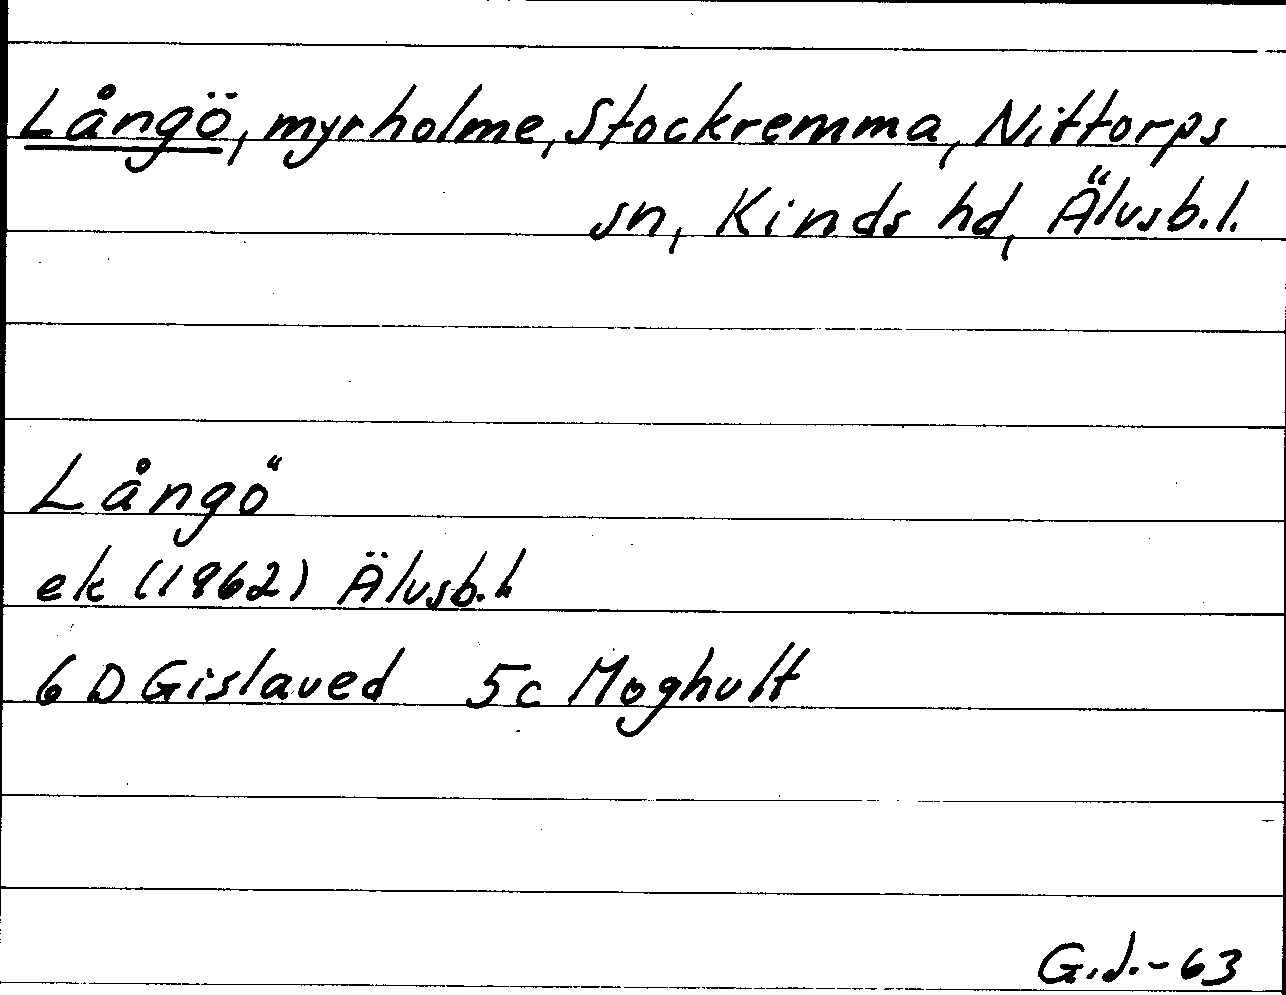 Långö, myrholme, Stockremma, Nittorps
sn, Kinds hd, Älvsb.l.
Långö
ek (1962) Älvsb.l.
6D Gislaved 5c Moghult
G.J.-63